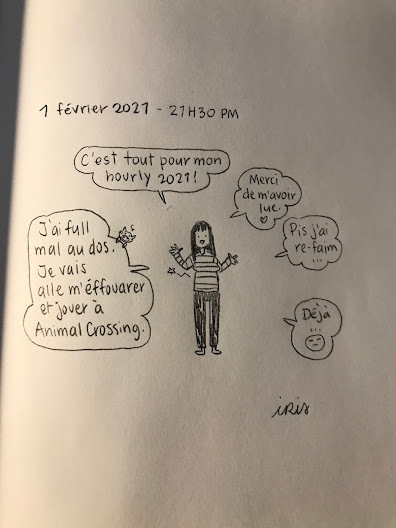 1 février 2021 - 21H30 PM
C'est tout pour mon
hourly 2021!
Merci
de m'avoir
lue.
Pis j'ai
re-faim
...
J'ai full
mal au dos.
Je vais
alle m'éffouarer
et jouer à
Animal Crossing.
Déjà
...
iris